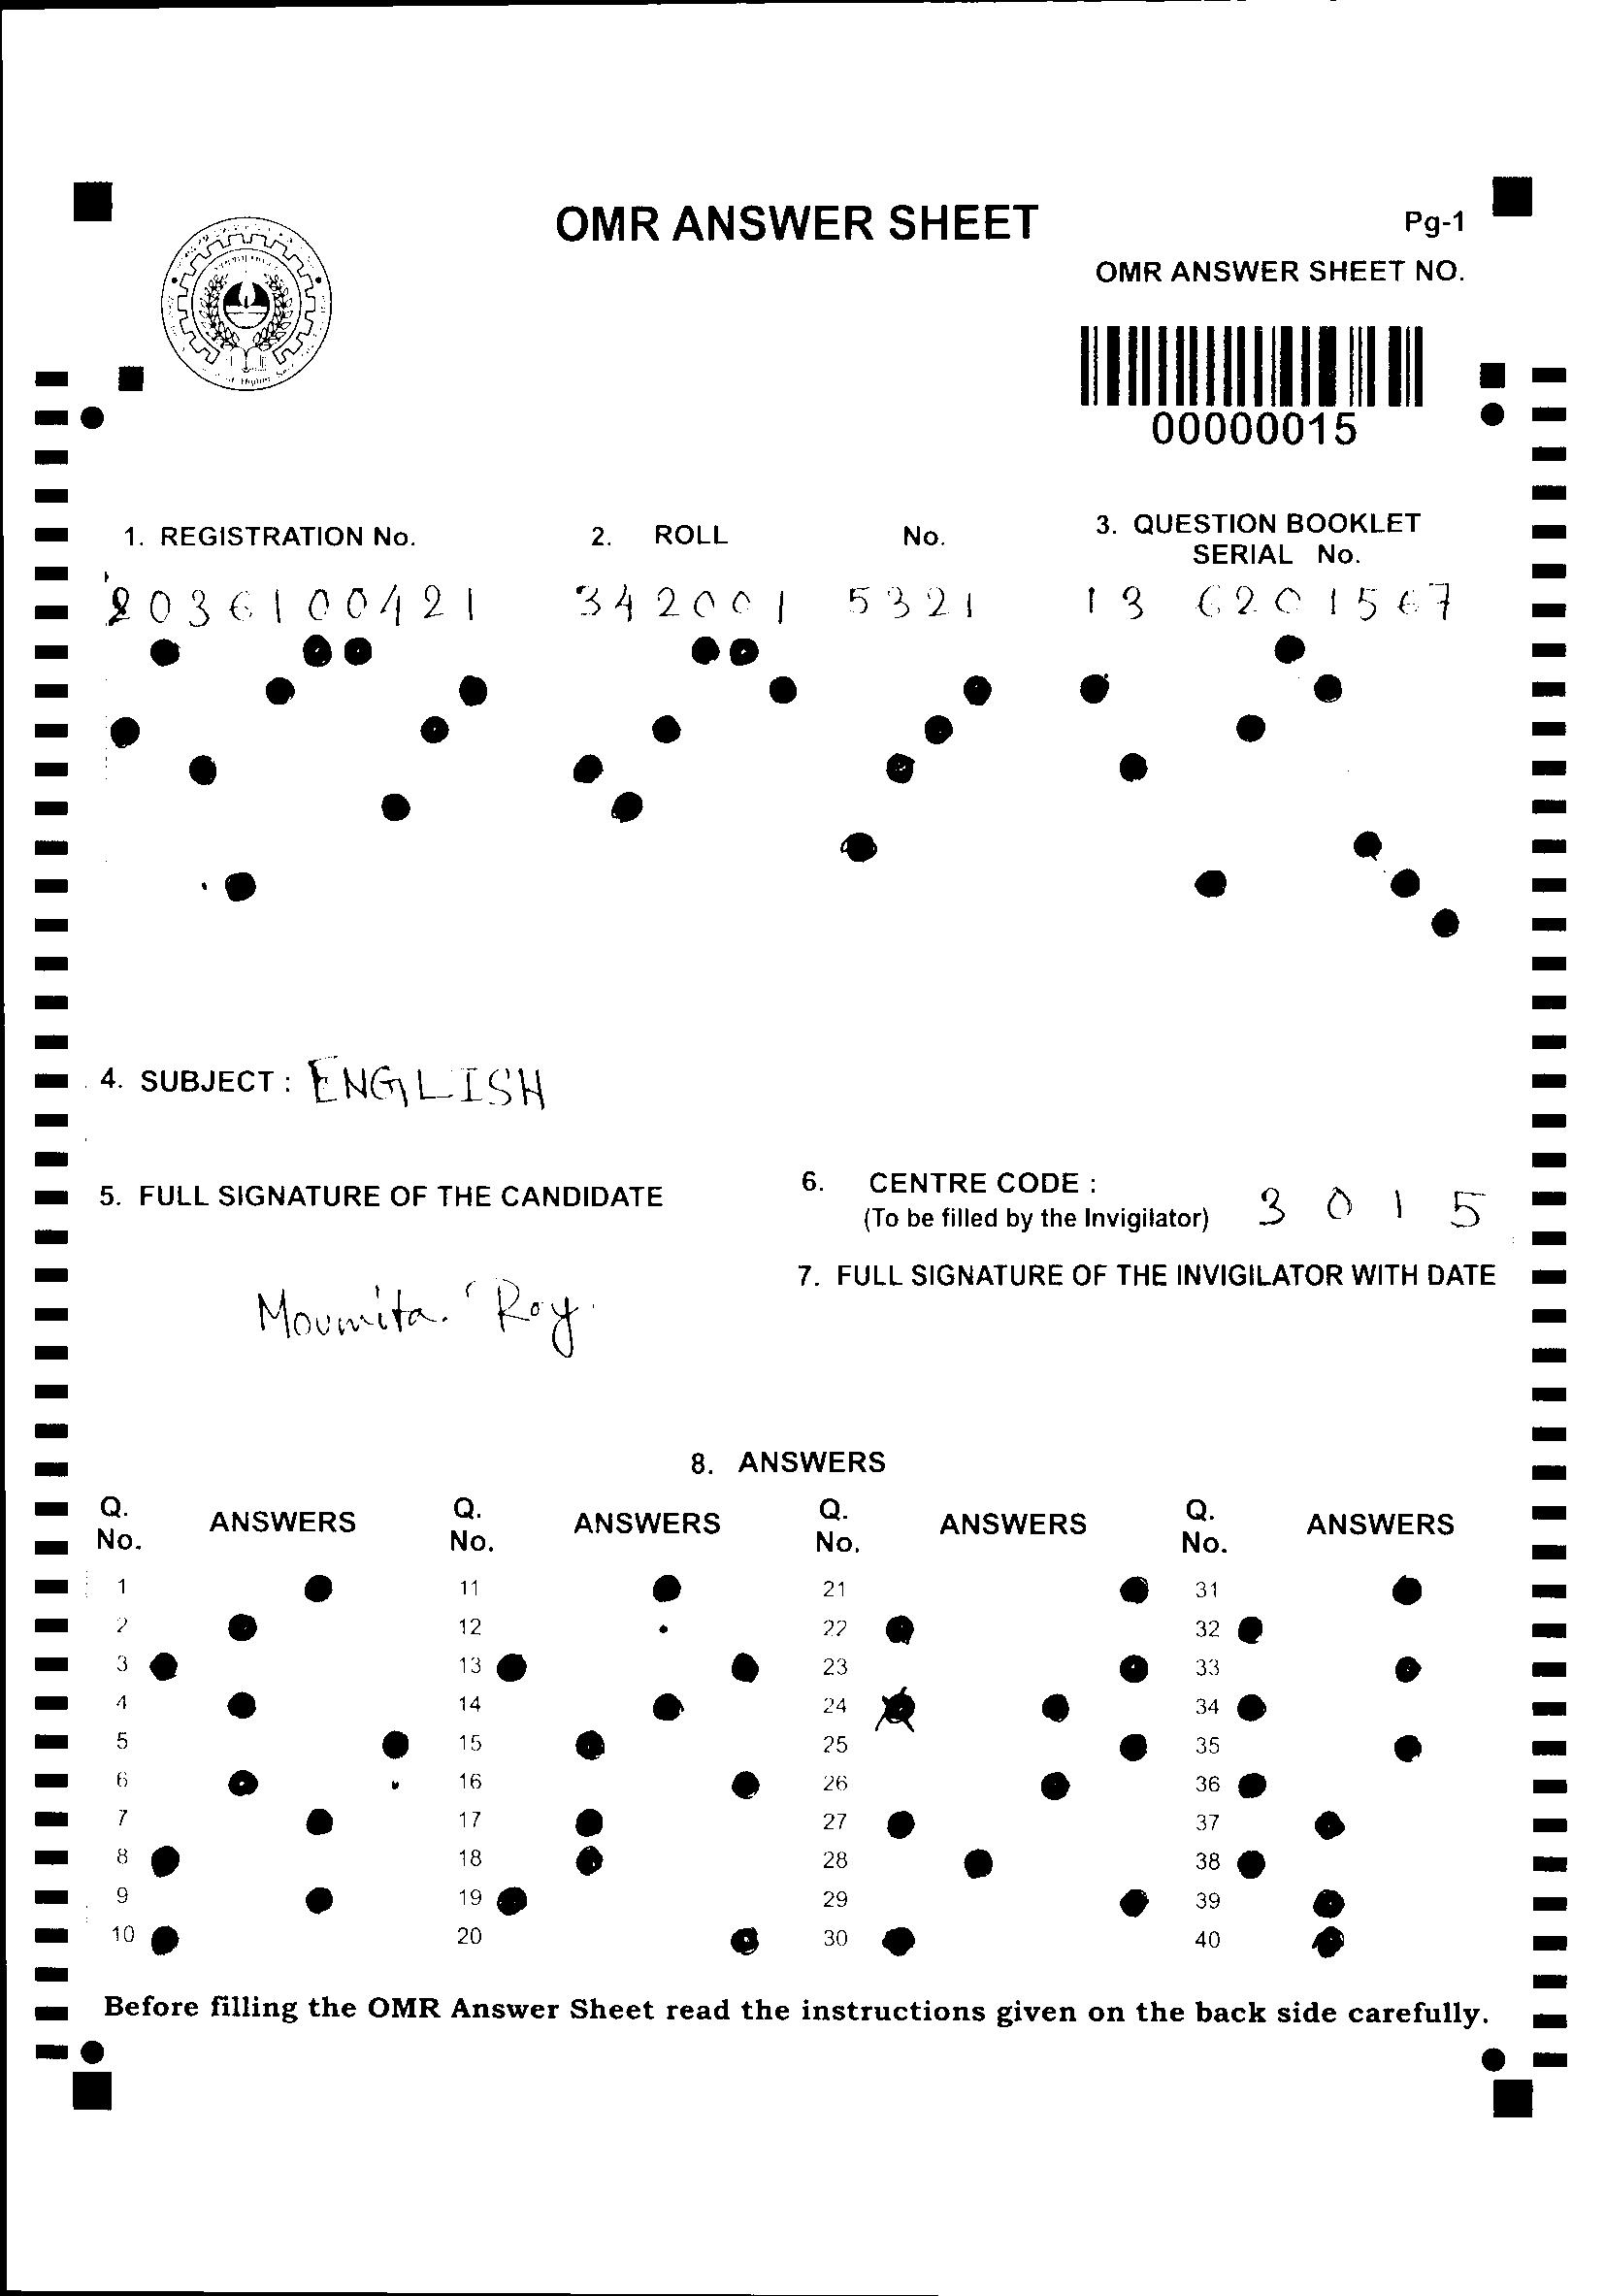 OMR ANSWER SHEET
Pg-1
OMR ANSWER SHEET NO.
00000015
1. REGISTRATION No.
2. ROLL No.
3. QUESTION BOOKLET
SERIAL No.
2036100421
342001 5321
13 6201567
4. SUBJECT : ENGLISH
5. FULL SIGNATURE OF THE CANDIDATE
6. CENTRE CODE :
(To be filled by the Invigilator)
3 0 1 5
7. FULL SIGNATURE OF THE INVIGILATOR WITH DATE
Moumita. Roy.
8. ANSWERS
Q. No. ANSWERS Q. No. ANSWERS Q. No. ANSWERS Q. No. ANSWERS
1 11 21 31
2 12 22 32
3 13 23 33
4 14 24 34
5 15 25 35
6 16 26 36
7 17 27 37
8 18 28 38
9 19 29 39
10 20 30 40
Before filling the OMR Answer Sheet read the instructions given on the back side carefully.